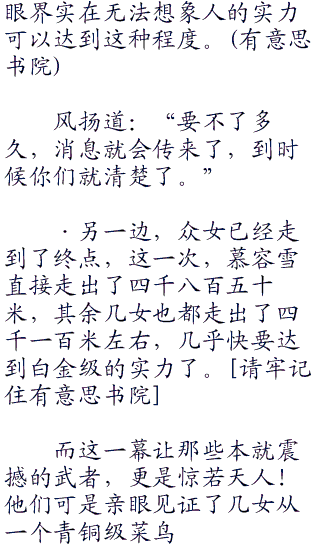 眼界实在无法想象人的实力
可以达到这种程度。(有意思
书院)
风扬道：“要不了多
久，消息就会传来了，到时
候你们就清楚了。”
·另一边，众女已经走
到了终点，这一次，慕容雪
直接走出了四千八百五十
米，其余几女也都走出了四
千一百米左右，几乎快要达
到白金级的实力了。[请牢记
住有意思书院]
而这一幕让那些本就震
撼的武者，更是惊若天人！
他们可是亲眼见证了几女从
一个青铜级菜鸟